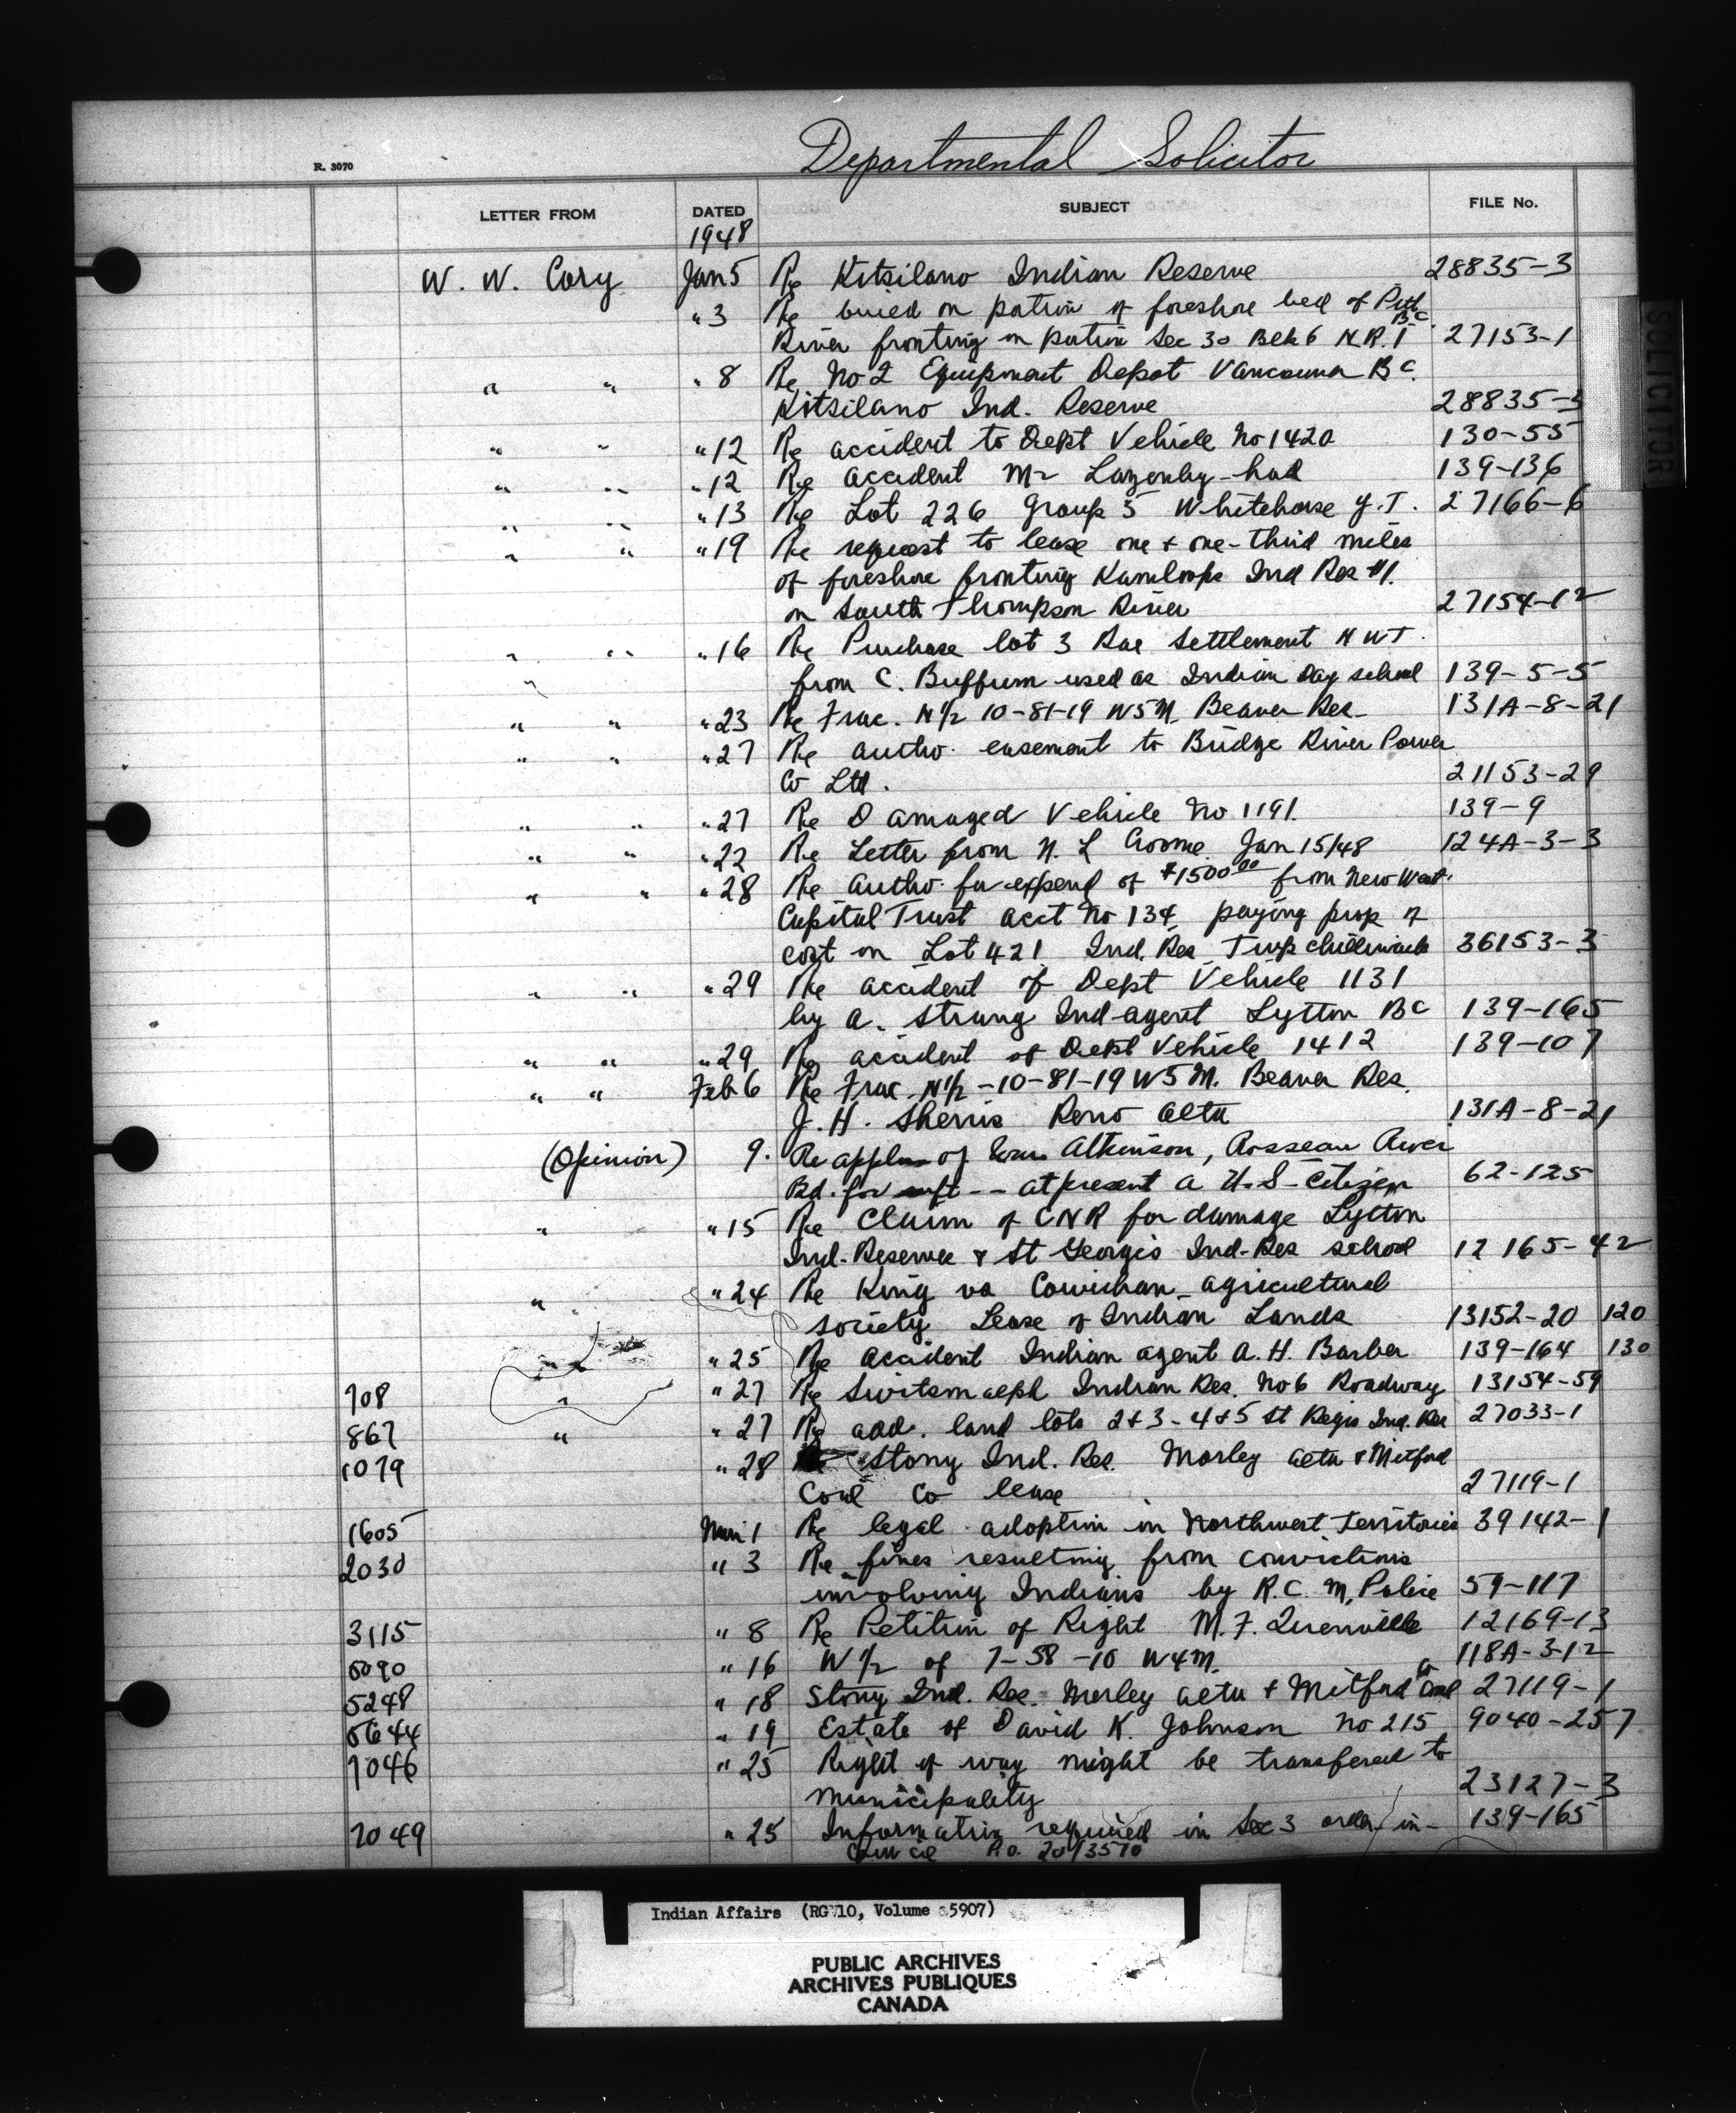 Departmental Solicitor
R. 3070
LETTER FROM DATED SUBJECT FILE No.
1948
W. W. Cory Jan 5 Re Kitsilano Indian Reserve 28835-3
" 3 Re on portion of foreshore bed of Pitt
B.C.
River fronting on portion Sec 30 Blk 6 N.R. 1 27153-1
" " " 8 Re No 2 Equipment Depot Vancouver B C.
Kitsilano Ind. Reserve 28835-3
" " " 12 Re accident to Dept Vehicle No 1420 130-55
" " " 12 Re accident Mr Lazenby had 139-136
" " " 13 Re Lot 226 Group 5 Whitehorse Y.T. 27166-6
" " " 19 Re request to lease one + one-third miles
of foreshore fronting Kamloops Ind Res #1.
on South Thompson River 27154-12
" " " 16 Re Purchase lot 3 Rae Settlement N W T.
" from C. Buffum used as Indian Day school 139-5-5
" " " 23 Re Frac. N½ 10-81-19 W5M. Beaver Res. 131A-8-21
" " " 27 Re autho. easement to Bridge River Power
Co Ltd. 21153-29
" " " 27 Re Damaged Vehicle No 1191. 139-9
" " " 22 Re Letter from N. L Croome Jan 15/48 124A-3-3
" " " 28 Re autho. for expend of $1500.00 from New West.
Capital Trust acct No 134 paying prop of
cost on Lot 421 Ind. Res Twp chilliwack 36153-3
" " " 29 Re accident of Dept Vehicle 1131
by A. Strang Ind-agent Lytton BC 139-165
" " " 29 Re accident of Dept Vehicle 1412 139-107
" " Feb 6 Re Frac. N½-10-81-19 W5M. Beaver Res.
J. H. Sherris Reno Alta 131A-8-21
(Opinion) 9. Re appln of Atkinson, Rosseau River
Bd. for -- at present a U.S-Citizen 62-125
" " 15 Re Claim of CNR for damage Lytton
Ind-Reserve & St Georges Ind-Res school 12165-42
" " 24 Re King vs Cowichan agricultural
society Lease of Indian Lands 13152-20 120
" 25 Re accident Indian agent A. H. Barber 139-164 130
708 " " 27 Re Switsmalph Indian Res. No 6 Roadway 13154-59
867 " " 27 Re add. land lots 2+3-4+5 St Regis Ind. Res 27033-1
1079 " 28 Re Stony Ind. Res. Morley Alta & Mitford
Coal Co lease 27119-1
1605 Mar 1 Re legal adoption in Northwest Territories 39142-1
2030 " 3 Re fines resulting from convictions
involving Indians by R.C.M. Police 59-117
3115 " 8 Re Petition of Right M. F. Quenville 12169-13
5090 " 16 W½ of 7-58-10 W4M. 118A-3-12
5248 " 18 Stony Ind. Res. Morley Alta + Mitford Coal Co 27119-1
5644 " 19 Estate of David K. Johnson No 215 9040-257
7046 " 25 Right of way might be transfered to
Municipality 23127-3
7049 " 25 Information required in Sec 3 order-in- 139-165
Council P.O. 20/3570
SOLICITOR
Indian Affairs (RG 10, Volume 5907)
PUBLIC ARCHIVES
ARCHIVES PUBLIQUES
CANADA